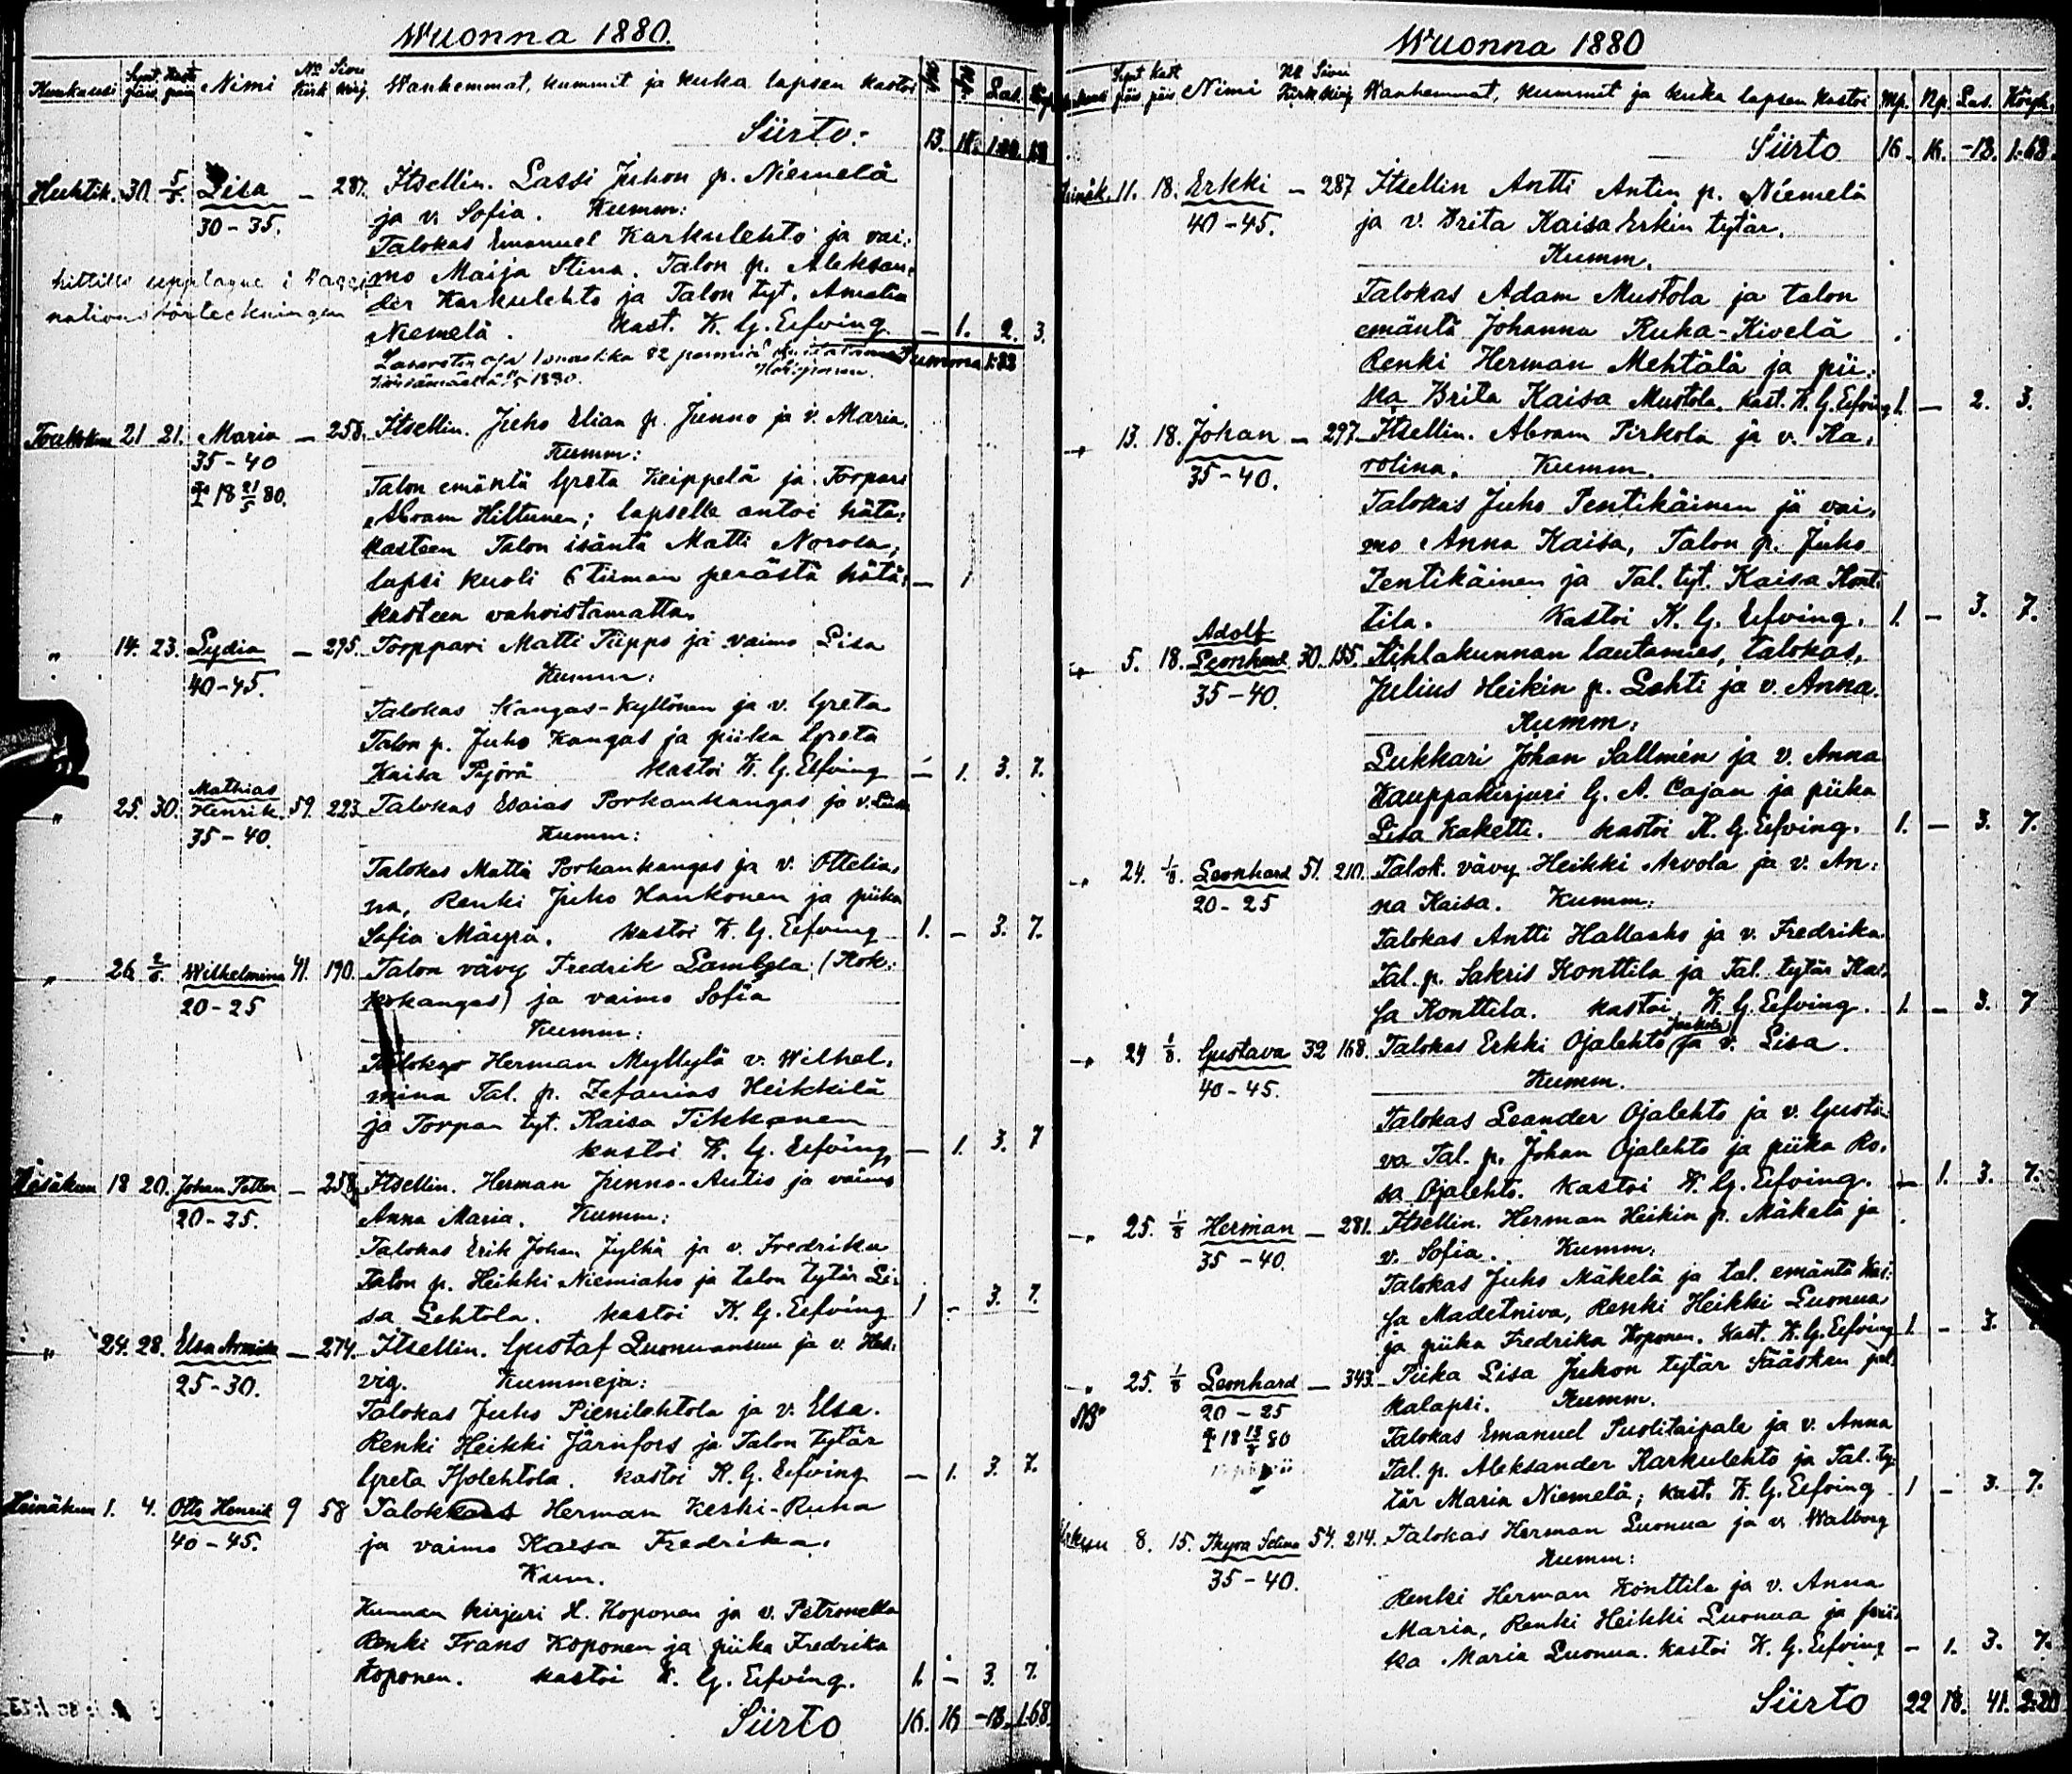 Wuonna 1880.
Kuukausi Synt. päiv. Kaste päiv. Nimi No Kirk. Sivu kirj. Wanhemmat, kummit ja kuka lapsen kastoi Mp. Np. Las. Köyh.
Siirto: 13.
Huhtik. 30. 5/5. Lisa — 287. Itsellin. Lassi Juhon p. Niemelä
30-35. ja v. Sofia. Kumm:
Talokas Emanuel Karkulehto ja vai-
mo Maija Stina. Talon p. Aleksan-
der Karkulehto ja Talon tyt. Amalia
Niemelä. Kast. K. G. Eefving — 1. 2. 3.
hittills upptagne i Vacci
nations förteckningen
Summa 1:88
Toukokuu 21 21. Maria — 258. Itsellin. Juho Elian p. Junno ja v. Maria.
35-40 Kumm:
18 21/5 80. Talon emäntä Greta Keippelä ja Torpari
Abram Hiltunen; lapselle antoi hätä-
kasteen Talon isäntä Matti Norosa;
lapsi kuoli 6 tiiman perästä hätä- — 1
kasteen vahvistamatta.
" 14. 23. Lydia — 295. Torppari Matti Tiippo ja vaimo Lisa
40-45. Kumm:
Talokas Kangas-Kyllönen ja v. Greta
Talon p. Juho Kangas ja piika Greta
Kaisa Pyörä Kastoi K. G. Eefving — 1. 3. 7.
Mathias
" 25. 30. Henrik. 59. 223. Talokas Esaias Porkankangas ja v. Lisa
35-40. Kumm:
Talokas Matti Porkankangas ja v. Ottelia-
na, Renki Juho Hankonen ja piika
Sofia Mäyrä. Kastoi K. G. Eefving 1. — 3. 7.
" 26. 2/6. Wilhelmina 41. 190. Talon vävy Fredrik Lambela (Kok-
20-25 kokangas) ja vaimo Sofia
Kumm:
Talokas Herman Myllylä v. Wilhel-
mina Tal. p. Zefanias Heikkilä
ja Torpan tyt. Kaisa Tikkanen
kastoi K. G. Eefving — 1. 3. 7
Kesäkuu 18 20. Johan Petter — 258. Itsellin. Herman Junno-Autio ja vaimo
20-25. Anna Maria. Kumm:
Talokas Erik Johan Jylhä ja v. Fredrika
Talon p. Heikki Niemiaho ja talon tytär Li-
sa Lehtola. kastoi K. G. Eefving 1 — 3. 7.
" 24. 28. Elsa — 274. Itsellin. Gustaf Luonuansuu ja v. Hed-
25-30. vig. Kummeja:
Talokas Juho Pienilehtola ja v. Elsa.
Renki Heikki Järnfors ja Talon tytär
Greta Isolehtola. kastoi K. G. Eefving — 1. 3. 7.
Heinäkuu 1. 4. Otto Henrik 9 58 Talokas Herman Keski-Ruha
40-45. ja vaimo Kaisa Fredrika.
Kum.
Kunnan kirjuri H. Koponen ja v. Petronella
Renki Frans Koponen ja piika Fredrika
Koponen. kastoi K. G. Eefving. 1. — 3. 7.
Siirto 16. 16 -18. 1.68.
Wuonna 1880
Synt päiv Kast päiv Nimi No Kirk Sivu kirj Wanhemmat, kummit ja kuka lapsen kastoi Mp. Np. Las. Köyh.
Siirto 16. 16. -18. 1.68.
Heinäk. 11. 18. Erkki — 287 Itsellin Antti Antin p. Niemelä
40-45. ja v. Brita Kaisa Erkin tytär.
Kumm.
Talokas Adam Mustola ja talon
emäntä Johanna Ruha-Kivelä
Renki Herman Mehtälä ja pii-
ka Brita Kaisa Mustola. kast. K. G. Eefving 1. — 2. 3.
" 13. 18. Johan — 297. Itsellin. Abram Pirkola ja v. Ka-
35-40. rolina. Kumm.
Talokas Juho Pentikäinen ja vai-
mo Anna Kaisa, Talon p. Juho
Pentikäinen ja Tal. tyt. Kaisa Kont-
tila. Kastoi K. G. Eefving. 1. — 3. 7.
Adolf
" 5. 18. Leonhard 30. 155. Kihlakunnan lautamies, talokas,
35-40. Julius Heikin p. Lehti ja v. Anna.
Kumm:
Lukkari Johan Sallmén ja v. Anna
Kauppakirjuri G. A. Cajan ja piika
Lisa Kaketti. kastoi K. G. Eefving. 1. — 3. 7.
" 24. 1/8. Leonhard 51. 210. Talok. vävy Heikki Arvola ja v. An-
20-25 na Kaisa. Kumm:
Talokas Antti Hallaaho ja v. Fredrika.
Tal. p. Sakris Konttila ja Tal. tytär Kai-
sa Konttila. kastoi K. G. Eefving. 1. — 3. 7
" 24 1/8. Gustava 32 168. Talokas Erkki Ojalehto ja v. Lisa.
40-45. Kumm.
Talokas Leander Ojalehto ja v. Gusta-
va Tal. p. Johan Ojalehto ja piika Ro-
sa Ojalehto. Kastoi K. G. Eefving. — 1. 3. 7.
" 25. 1/8 Herman — 281. Itsellin. Herman Heikin p. Mäkelä ja
35-40. v. Sofia. Kumm:
Talokas Juho Mäkelä ja tal. emäntä Kai-
sa Madetniva, Renki Heikki Luonua,
ja piika Fredrika Koponen. Kast. K. G. Eefving 1. — 3.
" 25. 1/8 Leonhard — 343. Piika Lisa Juhon tytär Sääsken jal-
NB 20-25 kalapsi. Kumm.
18 13/8 80 Talokas Emanuel Puolitaipale ja v. Anna
Tal. p. Aleksander Karkulehto ja Tal. ty-
tär Maria Niemelä; kast. K. G. Eefving 1 — 3. 7.
8. 15. Thyra Selma 54. 214. Talokas Herman Luonua ja v. Walborg
35-40. Kumm:
Renki Herman Konttila ja v. Anna
Maria, Renki Heikki Luonua ja pii-
ka Maria Luonua. Kastoi K. G. Eefving — 1. 3. 7.
Siirto 22 18. 41. 2:20